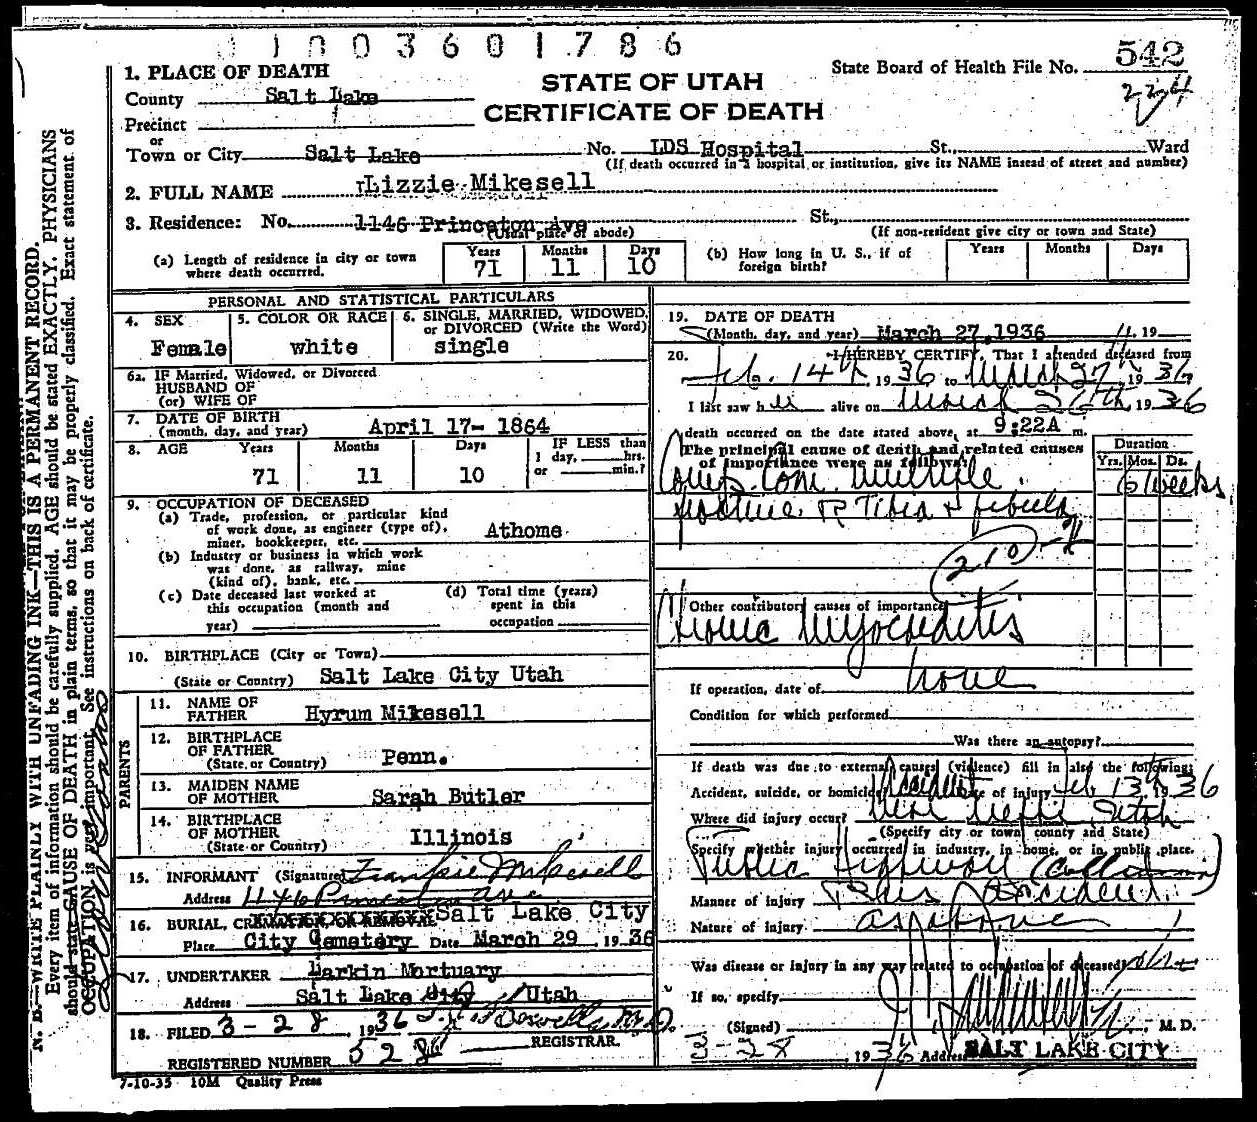 11003601786
542
224
1. PLACE OF DEATH
STATE OF UTAH
State Board of Health File No.
County Salt Lake
CERTIFICATE OF DEATH
Precinct
or
Town or City Salt Lake No. LDS Hospital St., Ward
(If death occurred in a hospital or institution, give its NAME instead of street and number)
2. FULL NAME Lizzie Mikesell
3. Residence: No. 1146 Princeton Ave St.,
(Usual place of abode) (If non-resident give city or town and State)
(a) Length of residence in city or town where death occurred. Years 71 Months 11 Days 10
(b) How long in U. S., if of foreign birth? Years Months Days
PERSONAL AND STATISTICAL PARTICULARS
4. SEX Female
5. COLOR OR RACE white
6. SINGLE, MARRIED, WIDOWED, or DIVORCED (Write the Word) single
6a. IF Married, Widowed, or Divorced
HUSBAND OF
(or) WIFE OF
7. DATE OF BIRTH
(month, day, and year) April 17- 1864
8. AGE Years Months Days IF LESS than
1 day, hrs.
71 11 10 or min.?
9. OCCUPATION OF DECEASED
(a) Trade, profession, or particular kind
of work done, as engineer (type of), Athome
miner, bookkeeper, etc.
(b) Industry or business in which work
was done, as railway, mine
(kind of), bank, etc.
(c) Date deceased last worked at this occupation (month and year)
(d) Total time (years) spent in this occupation
10. BIRTHPLACE (City or Town)
(State or Country) Salt Lake City Utah
PARENTS
11. NAME OF
FATHER Hyrum Mikesell
12. BIRTHPLACE
OF FATHER Penn.
(State or Country)
13. MAIDEN NAME
OF MOTHER Sarah Butler
14. BIRTHPLACE
OF MOTHER Illinois
(State or Country)
15. INFORMANT (Signature) Mikesell
Address 1146 Princeton Ave
16. BURIAL, CREMATION, OR REMOVAL Salt Lake City
Place City Cemetery Date March 29, 1936
17. UNDERTAKER Larkin Mortuary
Address Salt Lake City Utah
18. FILED 3-28, 1936
REGISTRAR.
REGISTERED NUMBER 528
7-10-35 10M Quality Press
19. DATE OF DEATH
(Month, day, and year) March 27, 1936 19
20. I HEREBY CERTIFY, That I attended deceased from
Feb. 14th 1936 to March 27th, 1936
I last saw her alive on March 26th, 1936
death occurred on the date stated above, at 9:22A m.
The principal cause of death and related causes
of importance were as follows:
Duration
Yrs. Mos. Ds.
Comp. Com. multiple 6 weeks
fracture R Tibia & fibula
210
Other contributory causes of importance
Chronic Myocarditis
If operation, date of none
Condition for which performed
Was there an autopsy?
If death was due to external causes (violence) fill in also the following:
Accident, suicide, or homicide Accident Date of injury Feb 13th 1936
Where did injury occur? Near Nephi Utah
(Specify city or town, county and State)
Specify whether injury occurred in industry, in home, or in public place.
Public Highway (Collision)
Manner of injury Accident
Nature of injury as above
Was disease or injury in any way related to occupation of deceased?
If so, specify
(Signed) M. D.
3-28 1936 Address SALT LAKE CITY
N. B.—WRITE PLAINLY WITH UNFADING INK—THIS IS A PERMANENT RECORD.
Every item of information should be carefully supplied. AGE should be stated EXACTLY. PHYSICIANS
should state CAUSE OF DEATH in plain terms, so that it may be properly classified. Exact statement of
OCCUPATION is very important. See instructions on back of certificate.